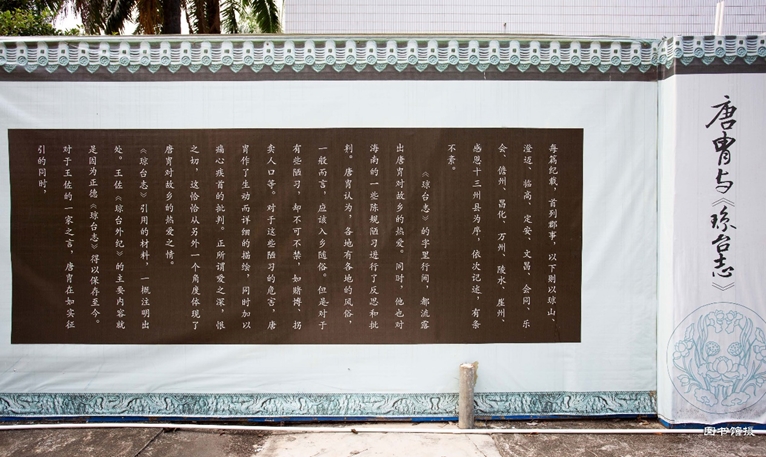 唐胄与《琼台志》
每篇纪载，首列郡事，以下则以琼山、
澄迈、临高、定安、文昌、会同、乐
会、儋州、昌化、万州、陵水、崖州、
感恩十三州县为序，依次记述，有条
不紊。
《琼台志》的字里行间，都流露
出唐胄对故乡的热爱。同时，他也对
海南的一些陈规陋习进行了反思和批
判。唐胄认为，各地有各地的风俗，
一般而言，应该入乡随俗。但是对于
有些陋习，却不可不禁，如赌博、拐
卖人口等。对于这些陋习的危害，唐
胄作了生动而详细的描绘，同时加以
痛心疾首的批判。正所谓爱之深，恨
之切，这恰恰从另外一个角度体现了
唐胄对故乡的热爱之情。
《琼台志》引用的材料，一概注明出
处。王佐《琼台外纪》的主要内容就
是因为正德《琼台志》得以保存至今。
对于王佐的一家之言，唐胄在如实征
引的同时，
图书馆摄